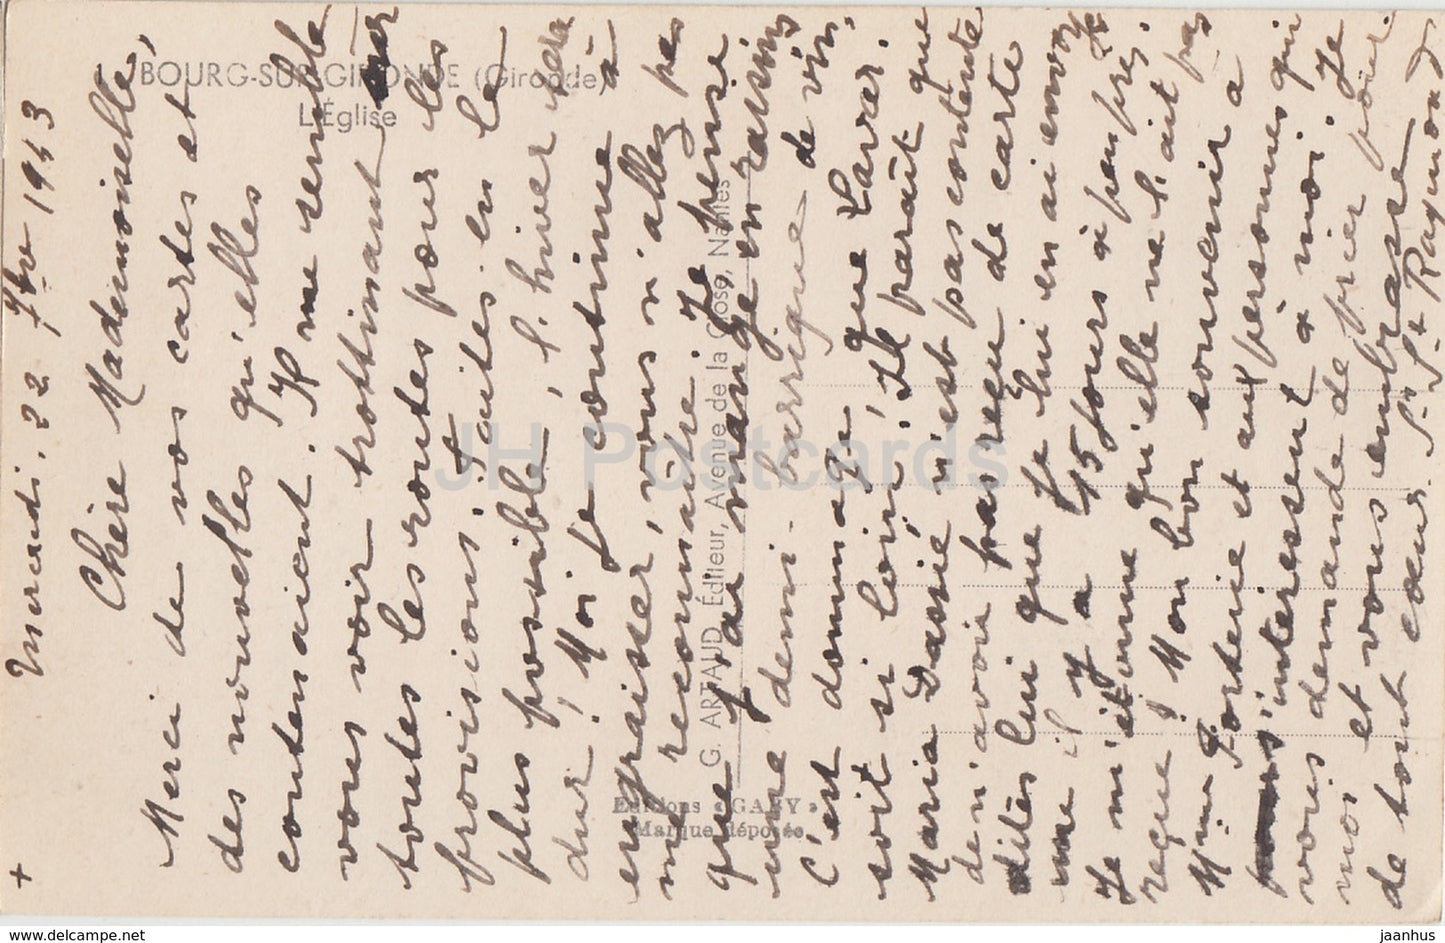 + Mercredi. 22 7bre 1943
Chère Mademoiselle,
Merci de vos cartes et
des nouvelles qu'elles
contenaient. Il me semble
vous voir trottinant sur
toutes les routes pour les
provisions. Faites en le
plus possible, l'hiver sera
dur! Moi je continue à
engraisser, vous n'allez pas
me reconnaître! Je pense
que j'ai mangé en raisins
une demi-barrique de vin.
C'est dommage que Lavar.
soit si loin! Il paraît que
Maria Dassié n'est pas contente
de n'avoir pas reçu de carte
dites lui que je lui en ai envoyé
une il y a 15 jours à peu près. Je
Je m'étonne qu'elle ne l'ait pas
reçue! Mon bon souvenir à
Mme Forterie et aux personnes qui
s'intéressent à moi. Je
vous demande de prier pour
moi et vous embrasse
de tout cœur. Sr St Raymond
1 BOURG-SUR-GIRONDE (Gironde)
L'Église
G. ARTAUD, Éditeur, Avenue de la Close, Nantes
Editions "GABY"
Marque déposée
JH Postcards
www.delcampe.net
jaanhus